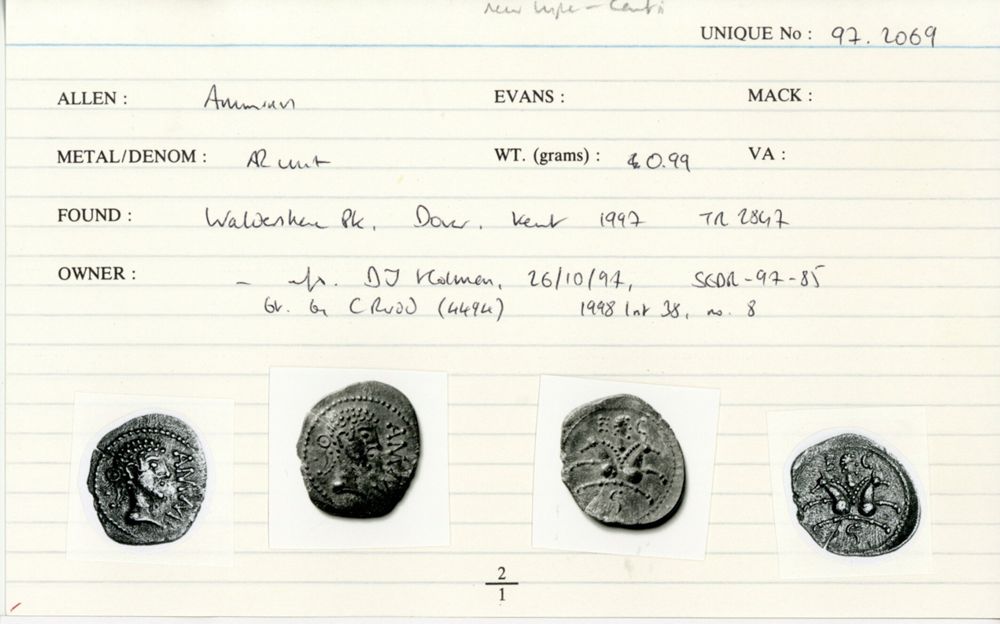 new type - Cantii
UNIQUE No : 97.2069
ALLEN : Amminus EVANS : MACK :
METAL/DENOM : AR unit WT. (grams) : 0.99 VA :
FOUND : Waldershare Pk, Dover, Kent 1997 TR 2847
OWNER : - DJ Holman, 26/10/97, SGDR-97-85
(4494) 1998 Int 38, no. 8
AMM
AMM
2
1